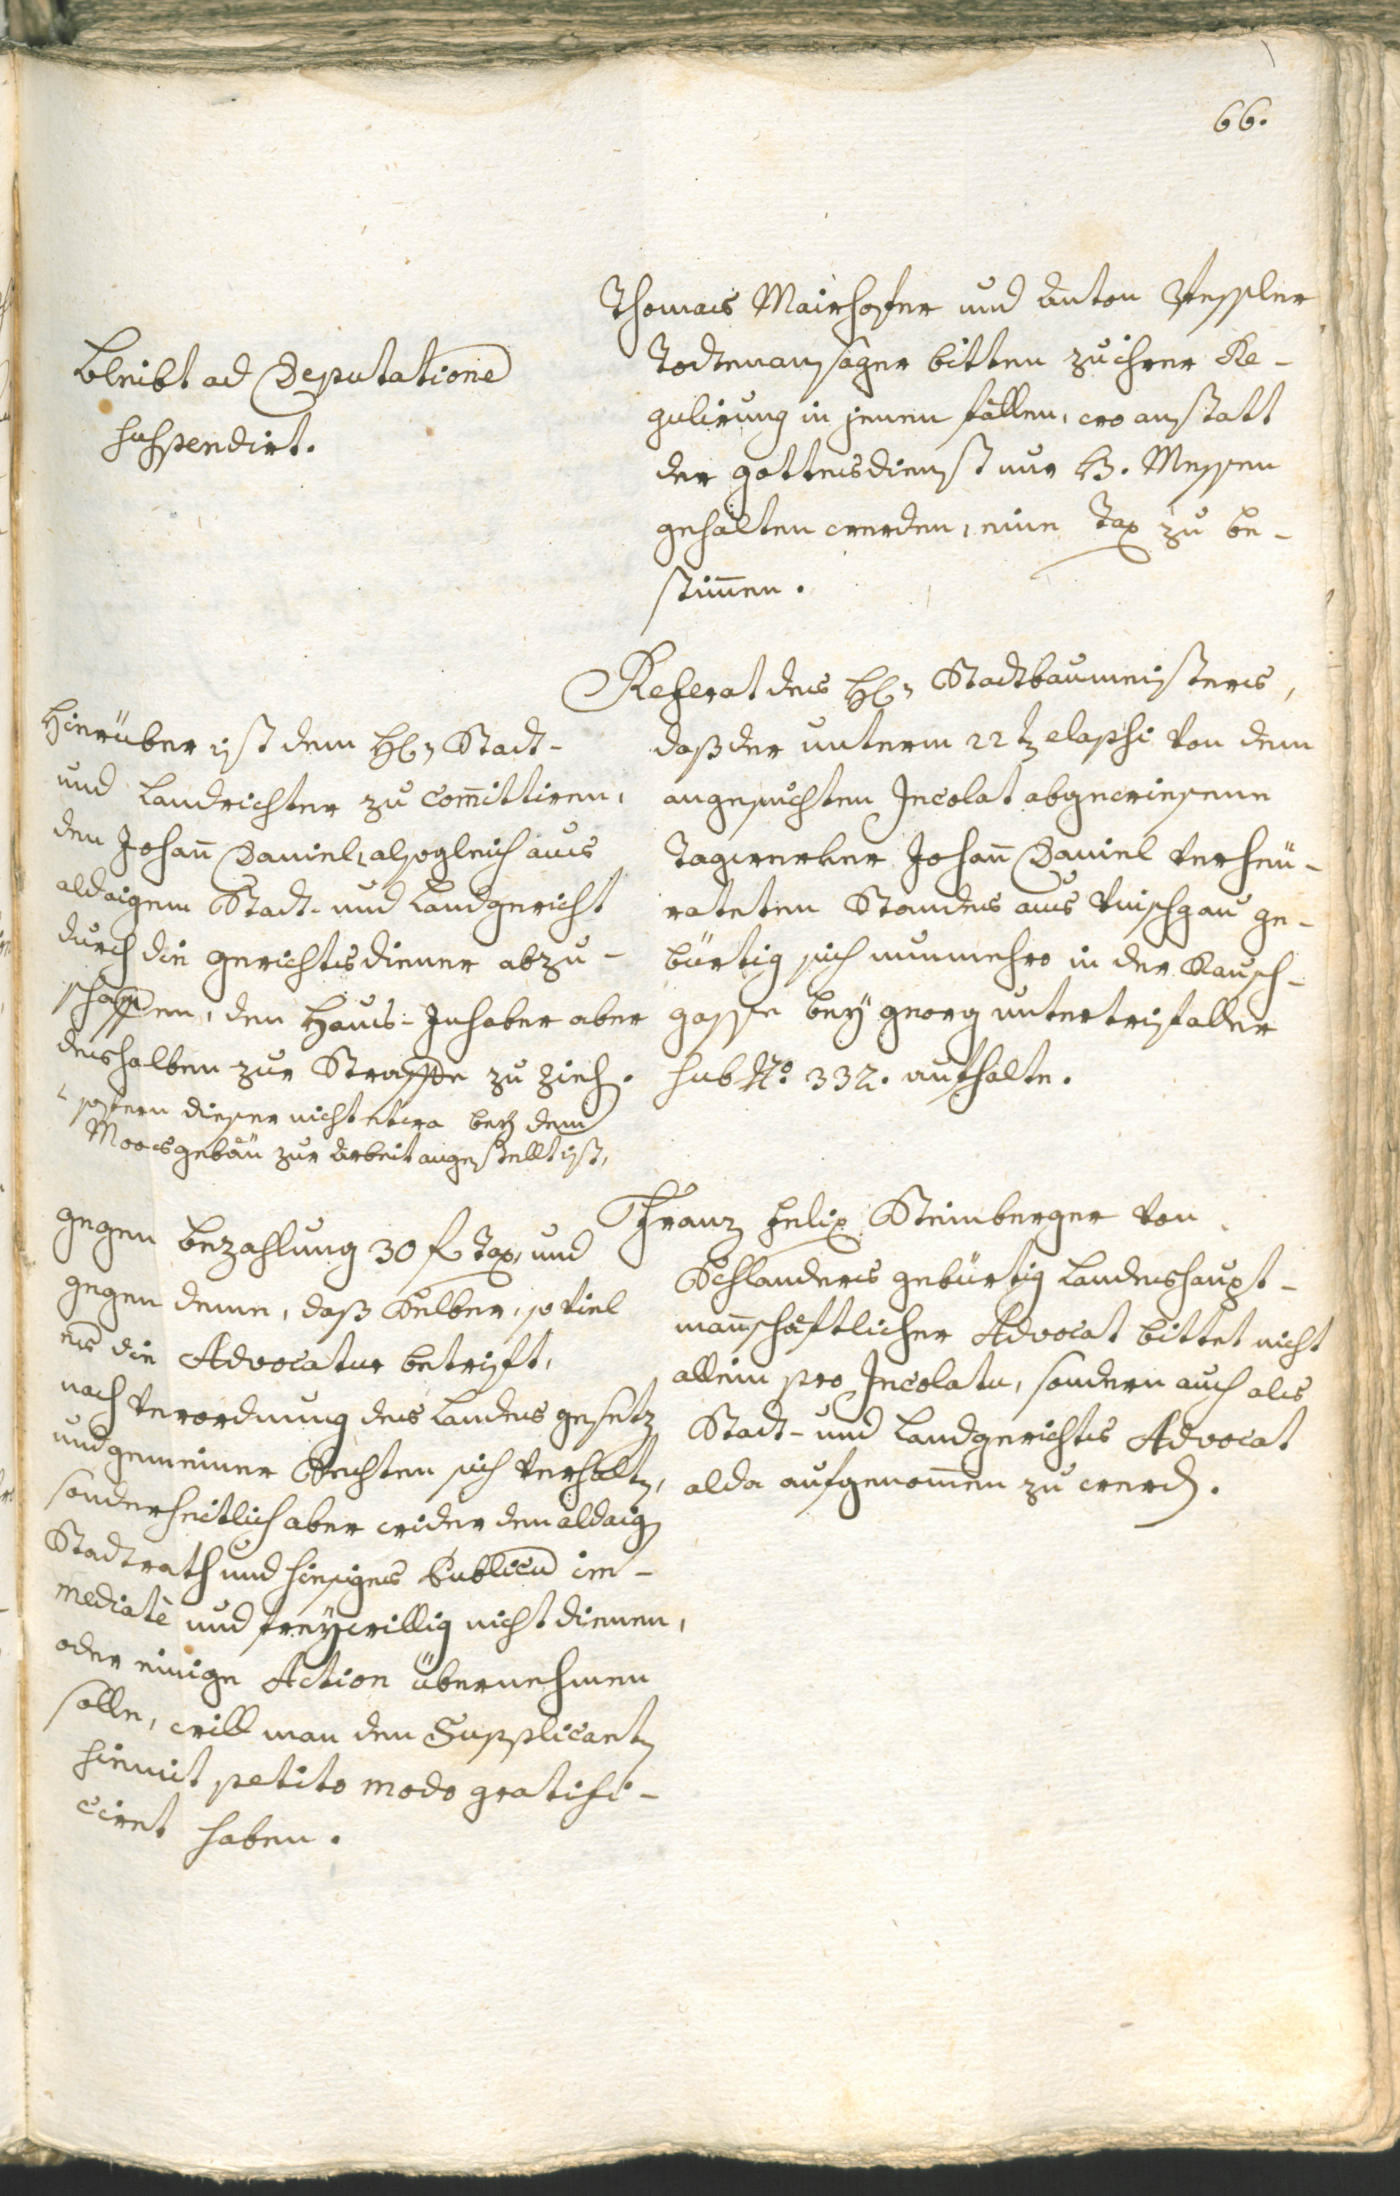 66.
Thomas Mairhofer und Anton Stessler
Todtenansager bitten zu ihrer Re-
gulirung in jenen fällen, wo anstatt
der gottesdienst nur H. Messen
gehalten werden, eine Tax zu be-
stim̄en.
bleibt ad Deputatione
suspendirt.
Referat des H: Stadtbaumeisters,
daß der unterm 22t elapsi von dem
angesuchten Incolat abgewiesene
Tagwerker Johan̄ Daniel verheü-
rateten Standes aus Vinschgau ge-
bürtig sich nunmehro in der Rausch-
gasse beÿ georg untertrifaller
sub No: 332. aufhalte.
Hierüber ist dem H: Stadt-
und Landrichter zu com̄ittiren,
den Johan̄ Daniel, alsogleich aus
aldaigem Stadt- und Landgericht
durch die gerichtsdiener abzu-
schaffen, den Haus-Inhaber aber
deshalben zur Straffe zu zieh.
sofern dieser nicht etwa beÿ dem
Moosgebäu zur Arbeit angestellt ist,
Franz Felix Steinberger von
Schlanders gebürtig Landeshaupt-
man̄schäftlicher Advocat bittet nicht
allein pro Incolatu, sondern auch als
Stadt- und Landgerichts Advocat
alda aufgenom̄en zu werd.
gegen bezahlung 30 f Tax, und
gegen deme, daß Selber, so viel
es die Advocatur betrift,
nach Verordnung des Landes gesetz
und gemeiner Rechten sich verhalt,
sonderheitlich aber wider den aldaig
Stadtrath und hiesiges Publicu im-
mediatè und freÿwillig nicht dienen,
oder einige Action übernehmen
solle, will man den Supplicant
hiemit petito modo gratifi-
ciret haben.